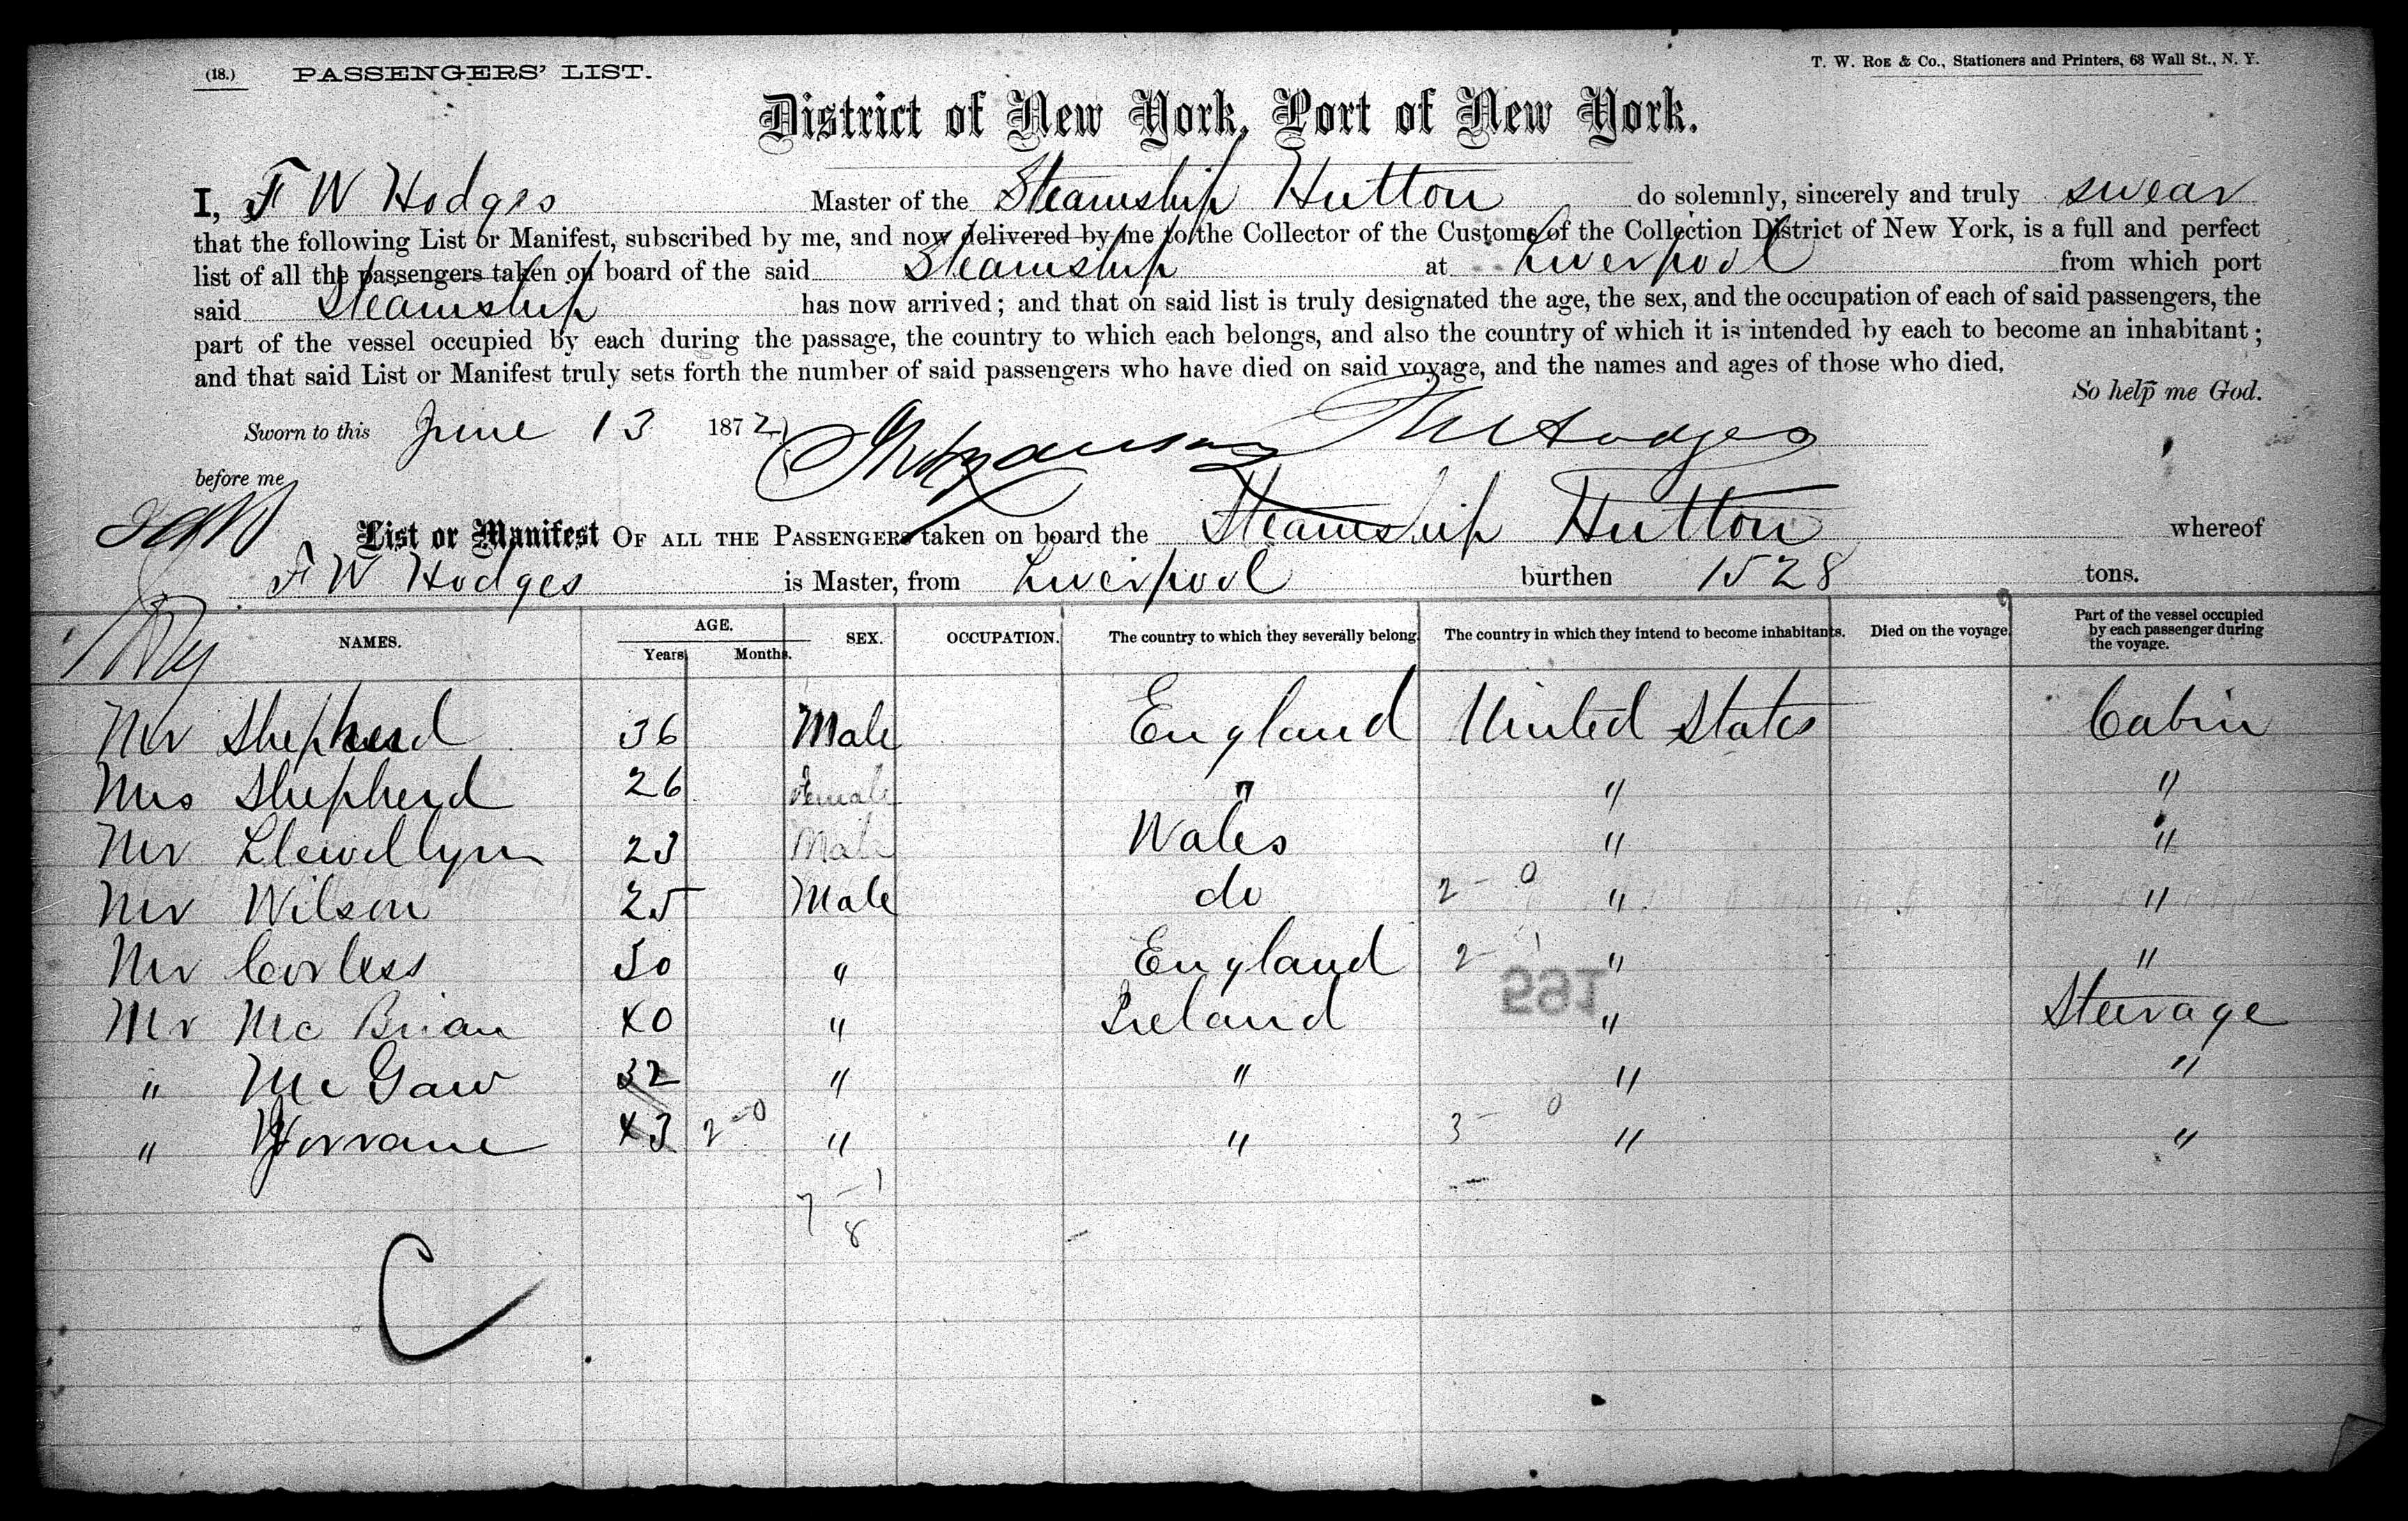 (18.) PASSENGERS' LIST.
T. W. Roe & Co., Stationers and Printers, 63 Wall St., N. Y.
District of New York, Port of New York.
I, F W Hodges Master of the Steamship Hutton do solemnly, sincerely and truly swear
that the following List or Manifest, subscribed by me, and now delivered by me to the Collector of the Customs of the Collection District of New York, is a full and perfect
list of all the passengers taken on board of the said Steamship at Liverpool from which port
said Steamship has now arrived; and that on said list is truly designated the age, the sex, and the occupation of each of said passengers, the
part of the vessel occupied by each during the passage, the country to which each belongs, and also the country of which it is intended by each to become an inhabitant;
and that said List or Manifest truly sets forth the number of said passengers who have died on said voyage, and the names and ages of those who died.
So help me God.
Sworn to this June 13 1872 F W Hodges
before me
List or Manifest OF ALL THE PASSENGERS taken on board the Steamship Hutton whereof
F W Hodges is Master, from Liverpool burthen 1528 tons.
NAMES. AGE. Years Months. SEX. OCCUPATION. The country to which they severally belong. The country in which they intend to become inhabitants. Died on the voyage. Part of the vessel occupied by each passenger during the voyage.
Mr Shepherd 36 Male England United States Cabin
Mrs Shepherd 26 Female " " "
Mr Llewellyn 23 Male Wales " "
Mr Wilson 25 Male do 2 - 0 " "
Mr Corless 50 " England 2 - 1 " "
591
Mr Mc Brian 40 " Ireland " Steerage
" Mc Gaw 32 " " " "
" 43 2-0 " " 3 - 0 " "
7 - 1
8
C